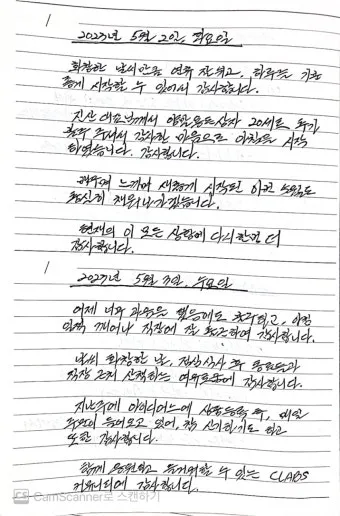 2023년 5월 2일, 화요일
화창한 날씨만큼 연휴 잘 쉬고, 하루를 기분
좋게 시작할 수 있어서 감사합니다.
대표님께서 20세트 추가
주셔서 감사한 마음으로 아침을 시작
하였습니다. 감사합니다.
느끼며 새롭게 시작된 이번 5월도
열심히 채워나가겠습니다.
현재의 이 모든 상황에 다시한번 더
감사합니다.
2023년 5월 3일, 수요일
어제 너무 과음을 했음에도 불구하고, 아침
일찍 깨어나 직장에 잘 출근하여 감사합니다.
날씨 화창한 날, 점심식사 후 동료들과
직장 근처 산책하는 여유로움에 감사합니다.
지난주에 아이디어스에 상품등록 후, 매일
주문이 들어오고 있어, 참 신기하기도 하고
또한 감사합니다.
함께 응원하고 할 수 있는 CLABS
커뮤니티에 감사합니다.
CS CamScanner로 스캔하기